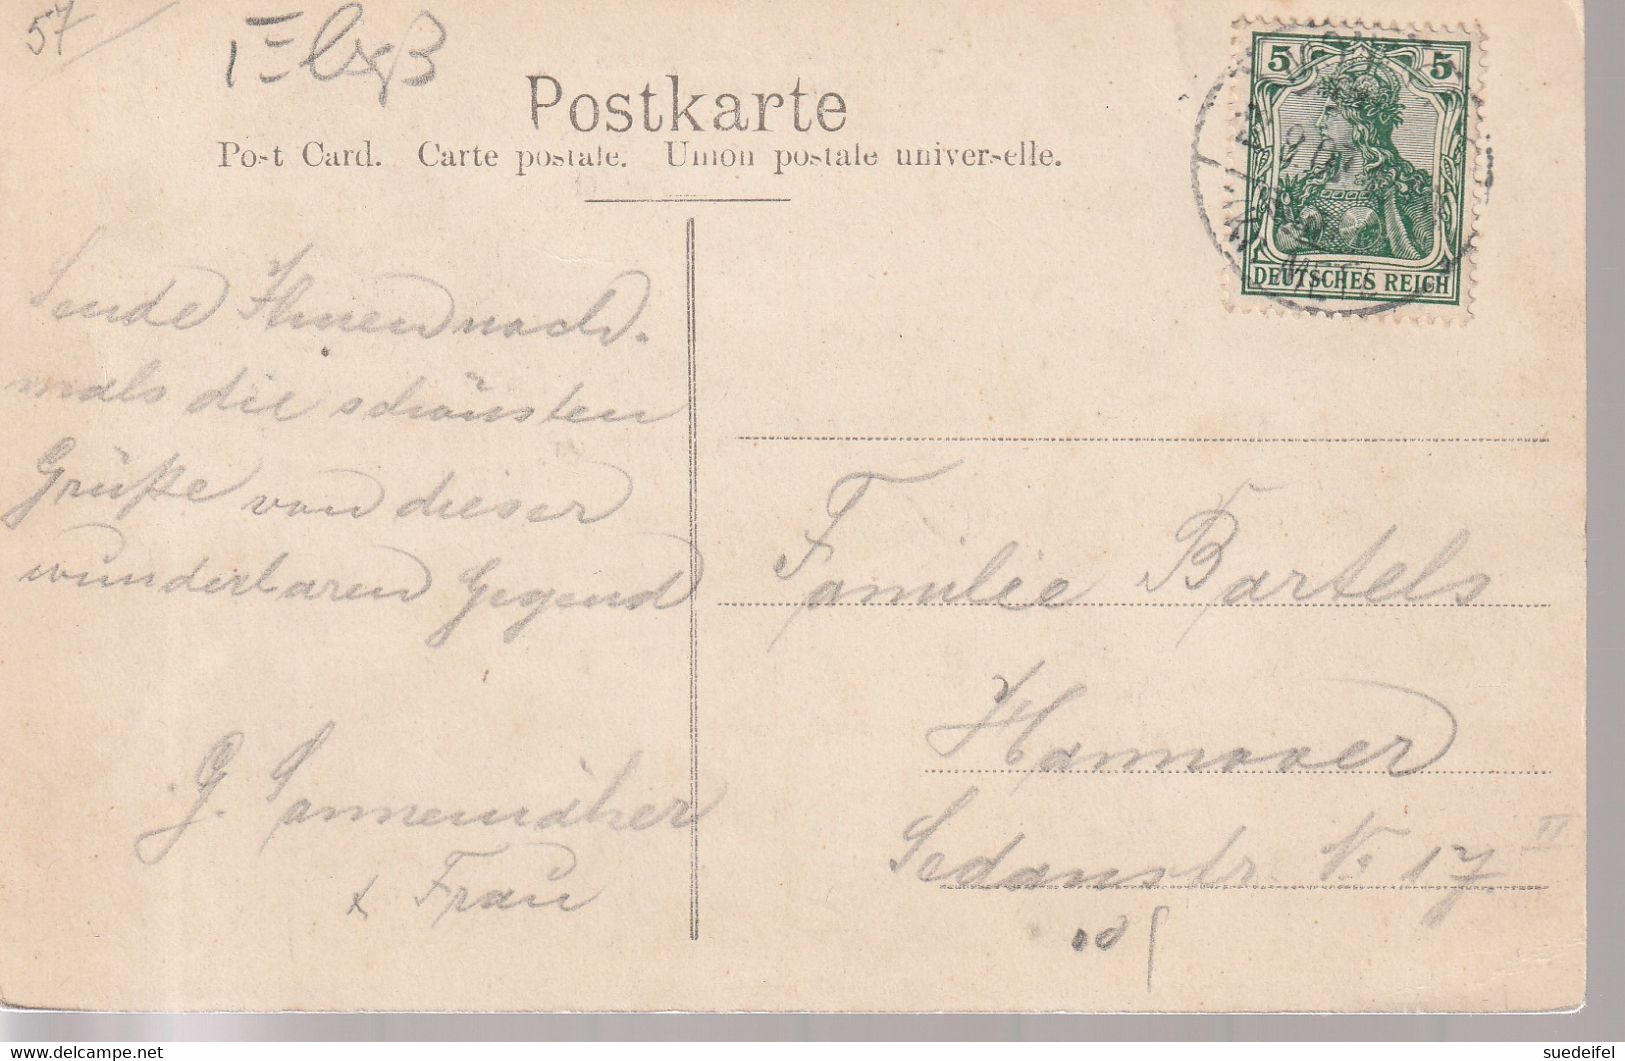 57
Postkarte
Post Card. Carte postale. Union postale universelle.
5 5
DEUTSCHES REICH
Sende Ihnen noch-
mals die schönsten
Grüße von dieser
wunderbaren Gegend
G.
+ Frau
Familie Bartels
Hannover
Sedanstr. No 17 II
www.delcampe.net
suedeifel